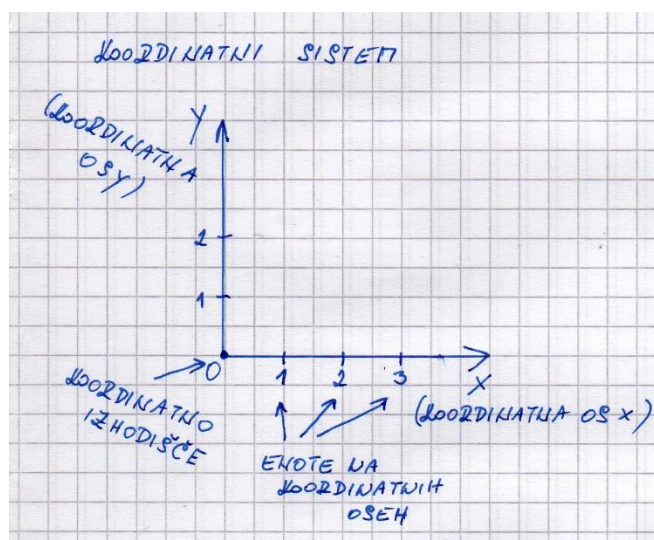 KOORDINATNI SISTEM
(KOORDINATNA
OS Y)
Y
2
1
0
1
2
3
X
KOORDINATNO
IZHODIŠČE
(KOORDINATNA OS X)
ENOTE NA
KOORDINATNIH
OSEH